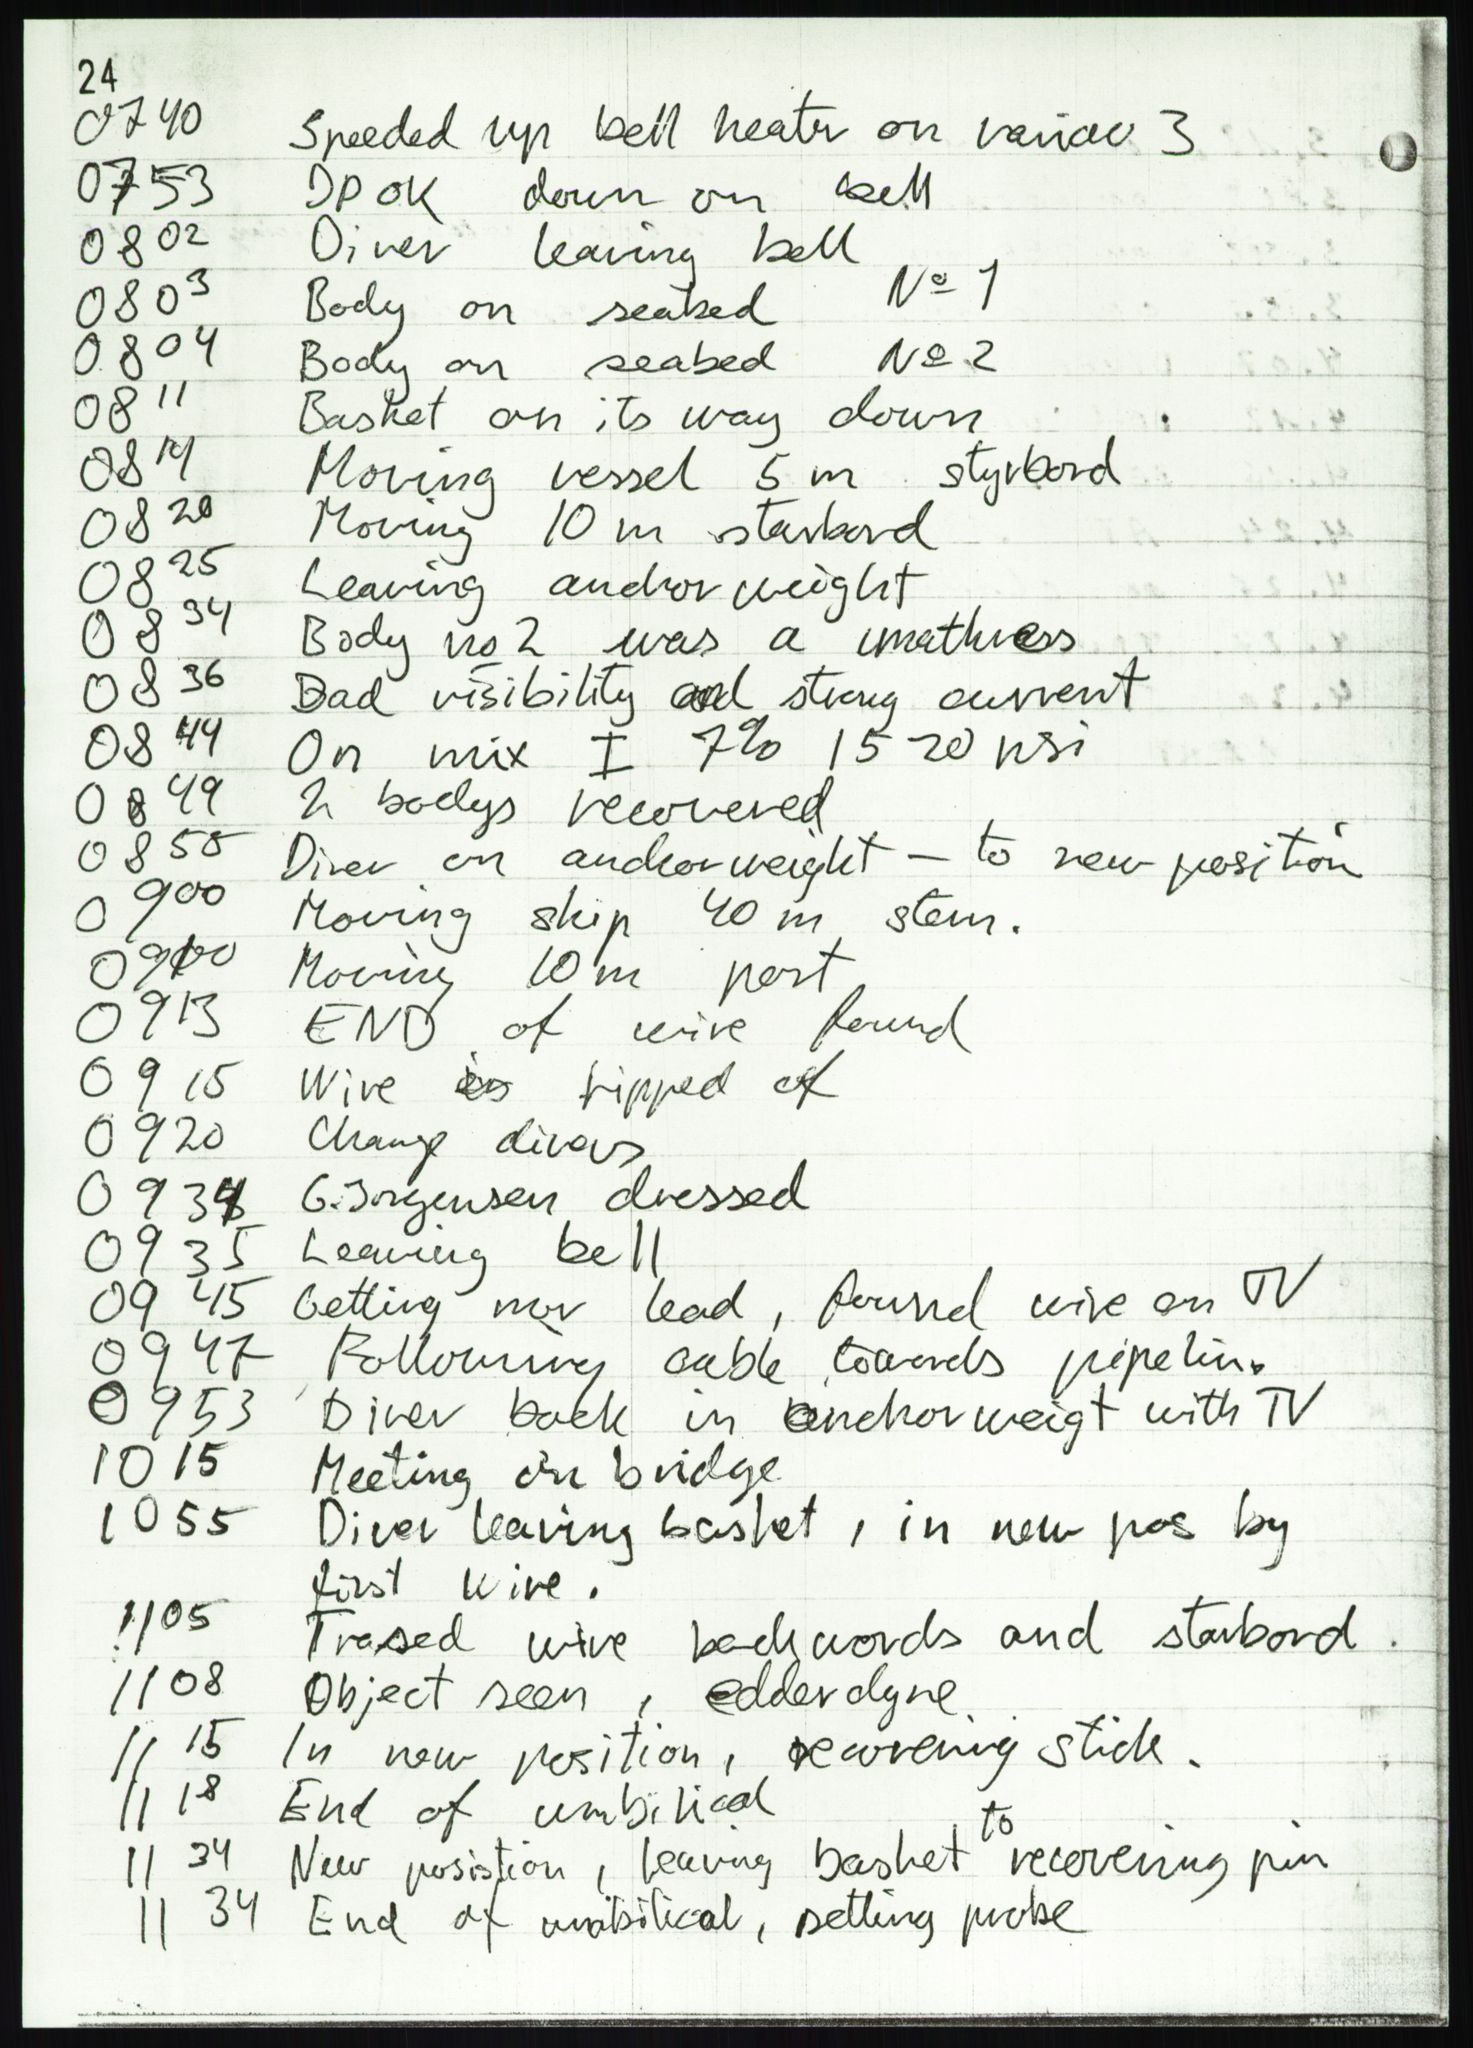 24
0740 Speeded up bell heater on variac 3
0753 DP OK down on bell
0802 Diver leaving bell
0803 Body on seabed No 1
0804 Body on seabed No 2
0811 Basket on its way down
0814 Moving vessel 5 m styrbord
0820 Moving 10 m starbord
0825 Leaving anchor weight
0834 Body no 2 was a mathress
0836 Bad visibility and strong current
0844 On mix I 7% 1520 psi
0849 2 bodys recovered
0855 Diver on anchorweight – to new position
0900 Moving ship 40 m stern.
0910 Moving 10 m port
0913 END of wire found
0915 Wire is ripped of
0920 Change divers
0934 G. Jorgensen dressed
0935 Leaving bell
0945 Getting nov lead, found wire on TV
0947 Following cable towards pipelin.
0953 Diver back in anchorweigt with TV
1015 Meeting on bridge
1055 Diver leaving basket, in new pos by
first wire.
1105 Trased wire backwords and starbord.
1108 Object seen, edderdyne
1115 In new position, recovering stick.
1118 End of umbilical
1134 New posistion, leaving basket to recovering pin
1134 End of umbilical, setting probe